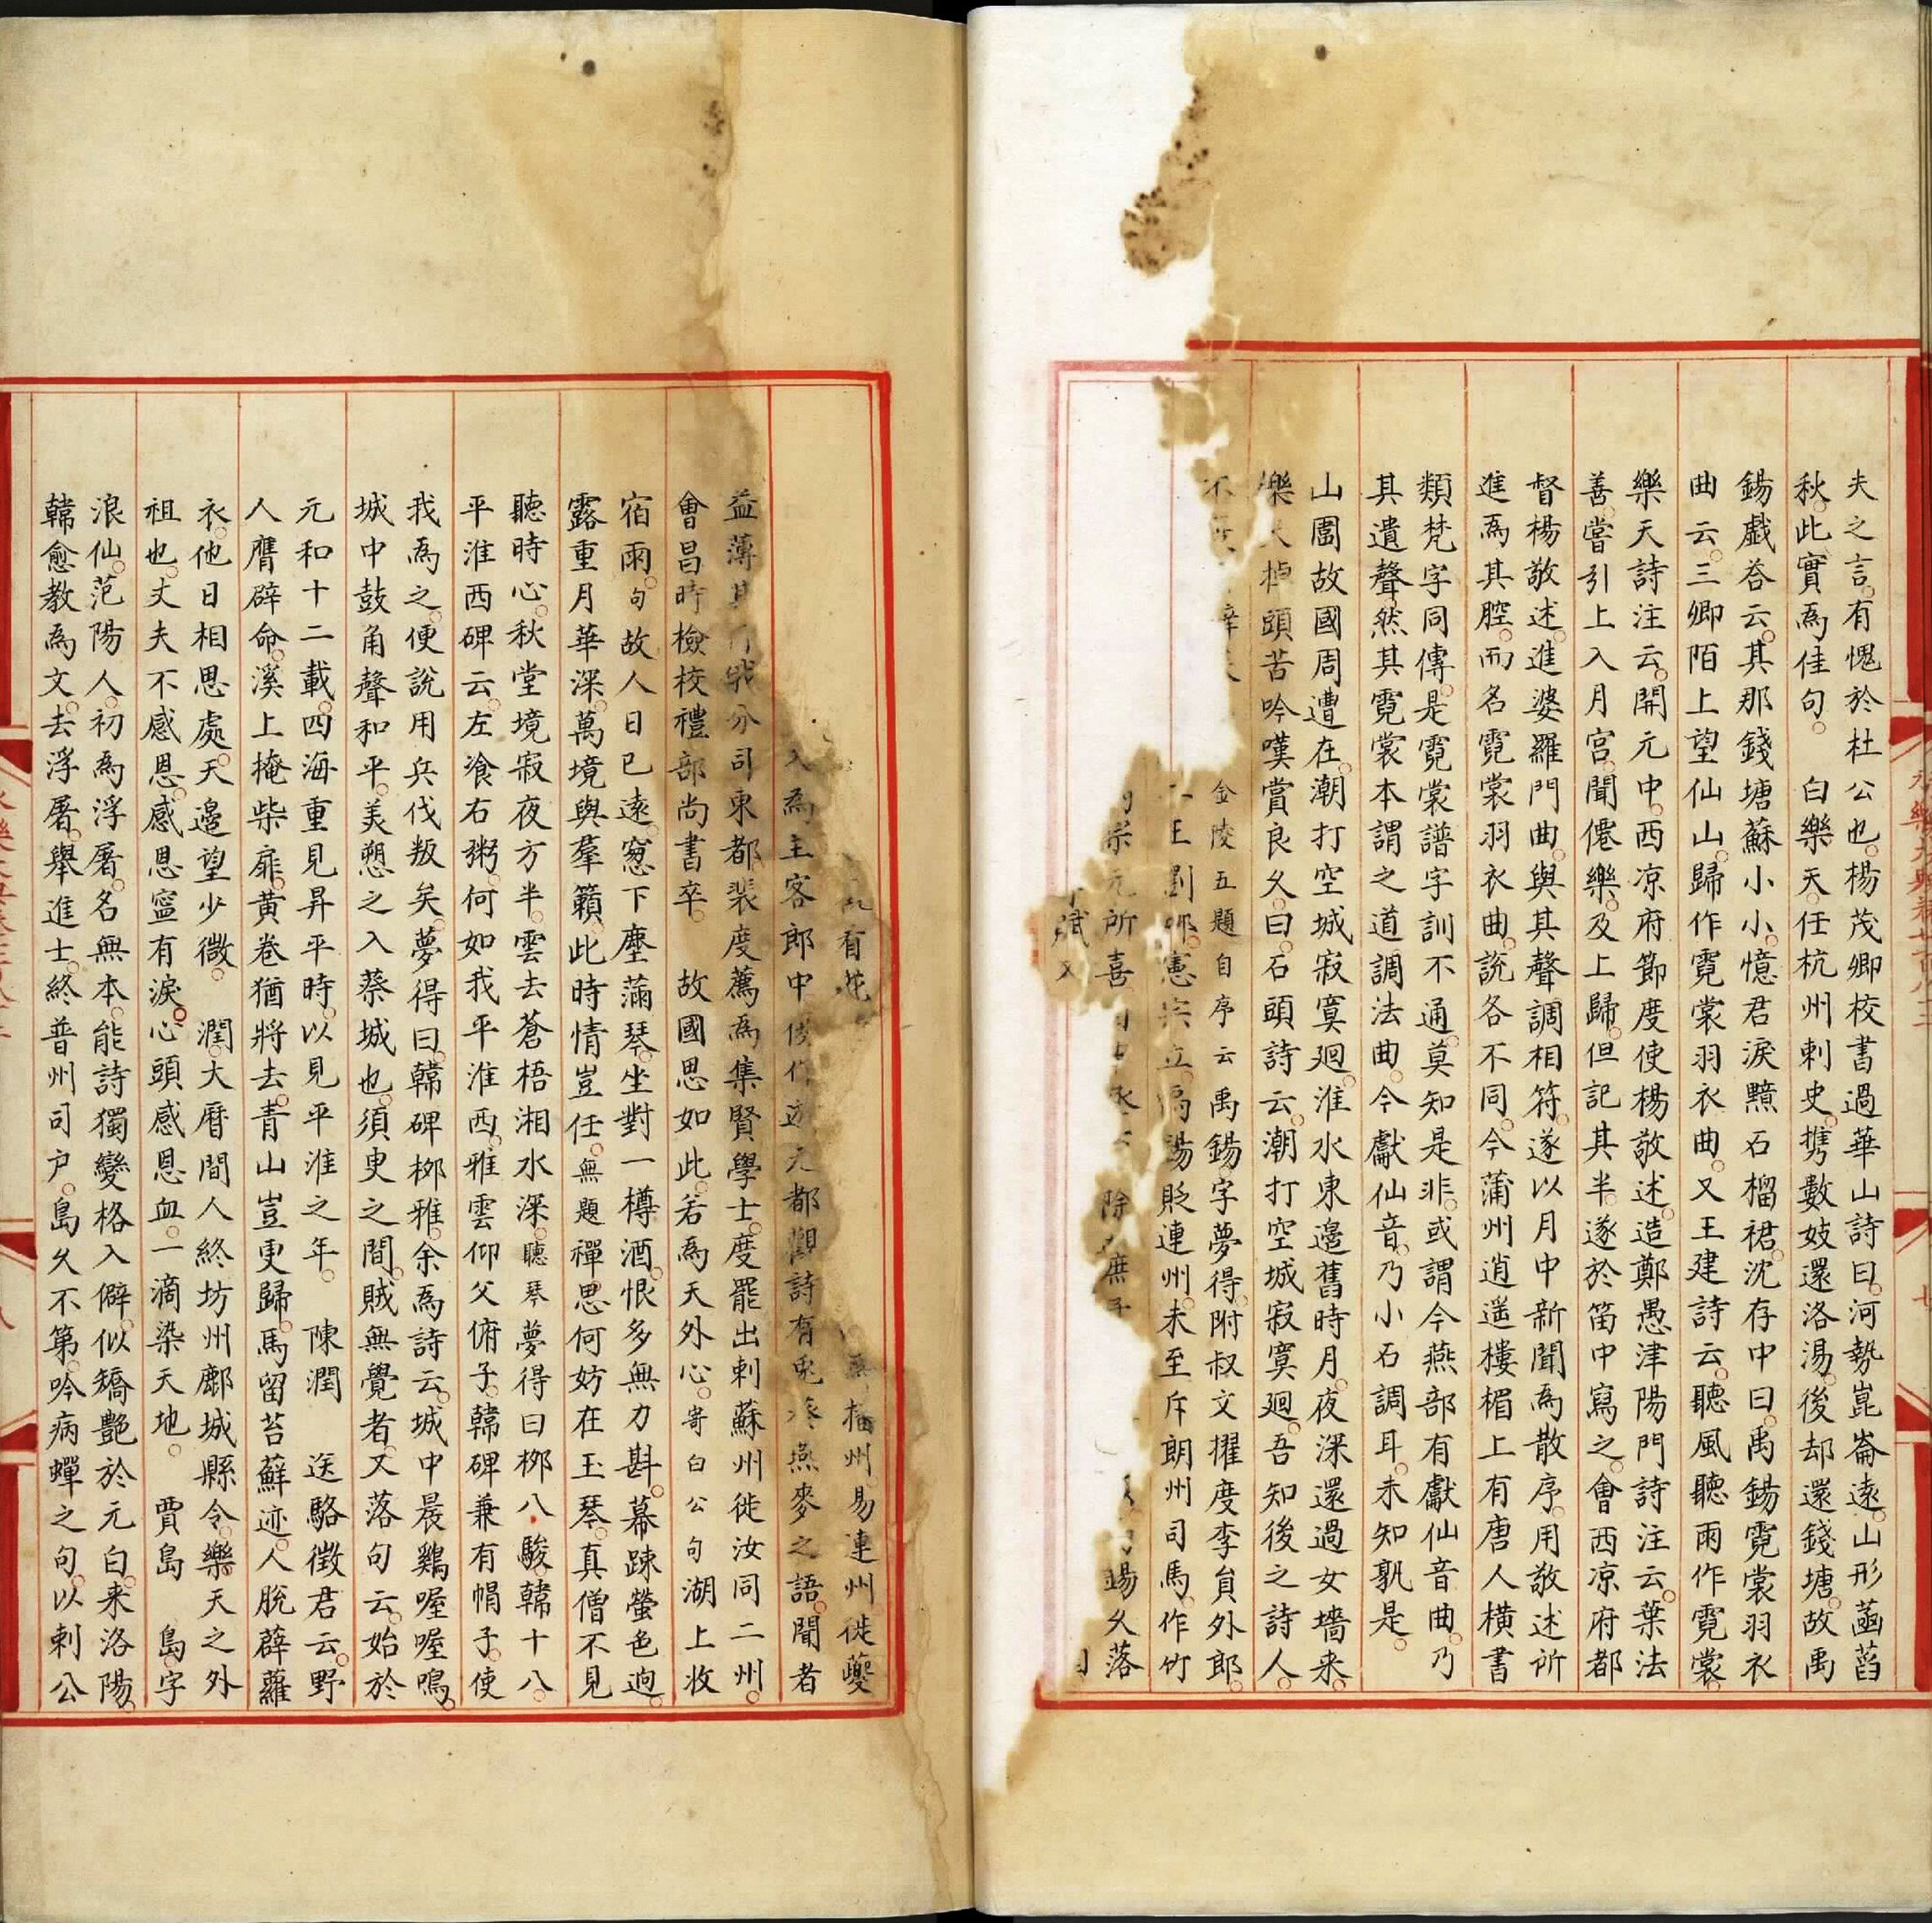 夫之言有愧於杜公也楊茂卿校書過華山詩曰河勢崑崙遠山形菡萏
秋此實爲佳句　白樂天任杭州刺史携數妓還洛湯後却還錢塘故禹
錫戲答云其那錢塘蘇小小憶君淚黦石榴裙沈存中曰禹錫霓裳羽衣
曲云三卿陌上望仙山歸作霓裳羽衣曲又王建詩云聽風聽雨作霓裳
樂天詩注云開元中西凉府節度使楊敬述造鄭愚津陽門詩注云葉法
善嘗引上入月宫聞僊樂及上歸但記其半遂於笛中寫之會西凉府都
督楊敬述進婆羅門曲與其聲調相符遂以月中新聞爲散序用敬述所
進爲其腔而名霓裳羽衣曲說各不同今蒲州逍遥樓楣上有唐人横書
類梵字同傳是霓裳譜字訓不通莫知是非或謂今燕部有獻仙音曲乃
其遺聲然其霓裳本謂之道調法曲今獻仙音乃小石調耳未知孰是
山圍故國周遭在潮打空城寂寞廻淮水東邉舊時月夜深還過女墻来
樂天掉頭苦吟嘆賞良久曰石頭詩云潮打空城寂寞廻吾知後之詩人
不金陵五題自序云禹錫字夢得附叔文擢度李員外郎
王劉憲立貶連州未至斥朗州司馬作竹
元所喜除錫久落
賦
有花州易連州徙夔
入爲主客郎中都觀詩有燕麥之語聞者
益薄其分司東都裴度薦爲集賢學士度罷出刺蘇州徙汝同二州
會昌時檢校禮部尚書卒　故國思如此若爲天外心寄白公句湖上收
宿雨句故人日已逺窓下塵滿琴坐對一樽酒恨多無力斟幕踈螢色逈
露重月華深萬境與羣籟此時情豈任無題禪思何妨在玉琴真僧不見
聽時心秋堂境寂夜方半雲去蒼梧湘水深聽琴夢得曰栁八駿韓十八
平淮西碑云左飡右粥何如我平淮西雅雲仰父俯子韓碑兼有帽子使
我爲之便說用兵伐叛矣夢得曰韓碑栁雅余爲詩云城中晨鷄喔喔鳴
城中鼓角聲和平美愬之入蔡城也須更之間賊無覺者又落句云始於
元和十二載四海重見昇平時以見平淮之年　陳潤　送駱徵君云野
人膺辟命溪上掩柴扉黄卷猶將去青山豈更歸馬留苔蘚迹人脫薜蘿
衣他日相思處天邉望少微　潤大曆間人終坊州鄜城縣令樂天之外
祖也丈夫不感恩感恩寧有淚心頭感恩血一滴染天地　賈島　島字
浪仙范陽人初爲浮屠名無本能詩獨變格入僻似矯艶於元白来洛陽
韓愈教爲文去浮屠舉進士終普州司户島久不第吟病蟬之句以刺公